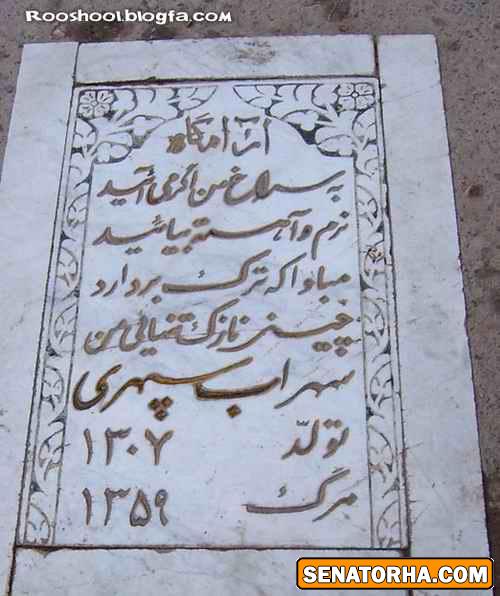 Rooshool.blogfa.com
آرامگاه
به سراغ من اگر می آئید
نرم و آهسته بیائید
مبادا که ترک بردارد
چینی نازک تنهائی من
سهراب سپهری
تولد ۱۳۰۷
مرگ ۱۳۵۹
SENATORHA.COM